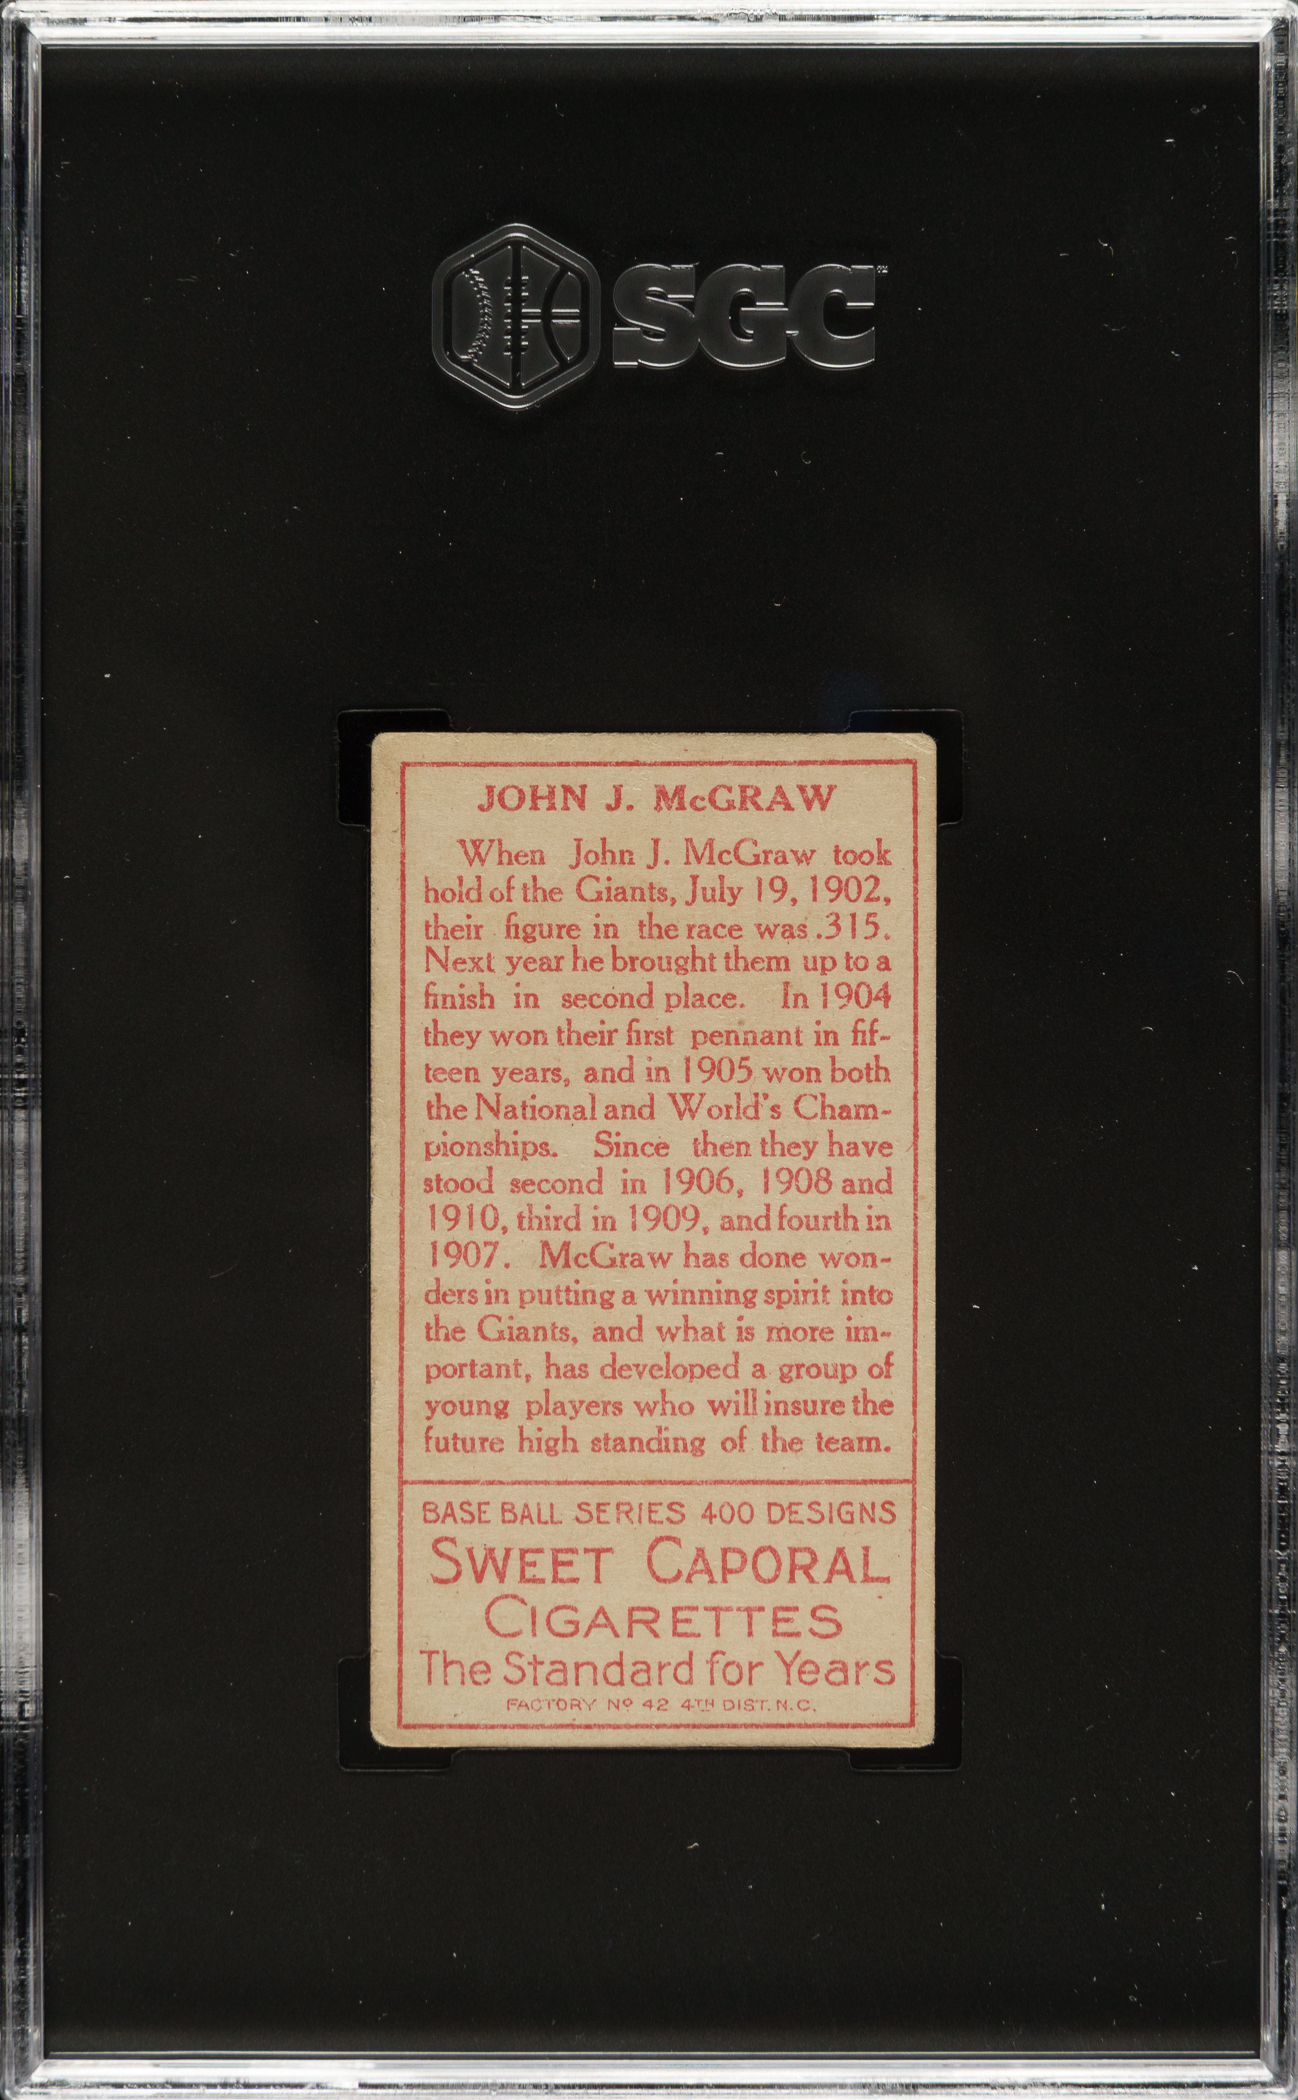 SGC
JOHN J. McGRAW
When John J. McGraw took
hold of the Giants, July 19, 1902,
their figure in the race was .315.
Next year he brought them up to a
finish in second place. In 1904
they won their first pennant in fif-
teen years, and in 1905 won both
the National and World's Cham-
pionships. Since then they have
stood second in 1906, 1908 and
1910, third in 1909, and fourth in
1907. McGraw has done won-
ders in putting a winning spirit into
the Giants, and what is more im-
portant, has developed a group of
young players who will insure the
future high standing of the team.
BASE BALL SERIES 400 DESIGNS
SWEET CAPORAL
CIGARETTES
The Standard for Years
FACTORY Nº 42 4TH DIST. N.C.